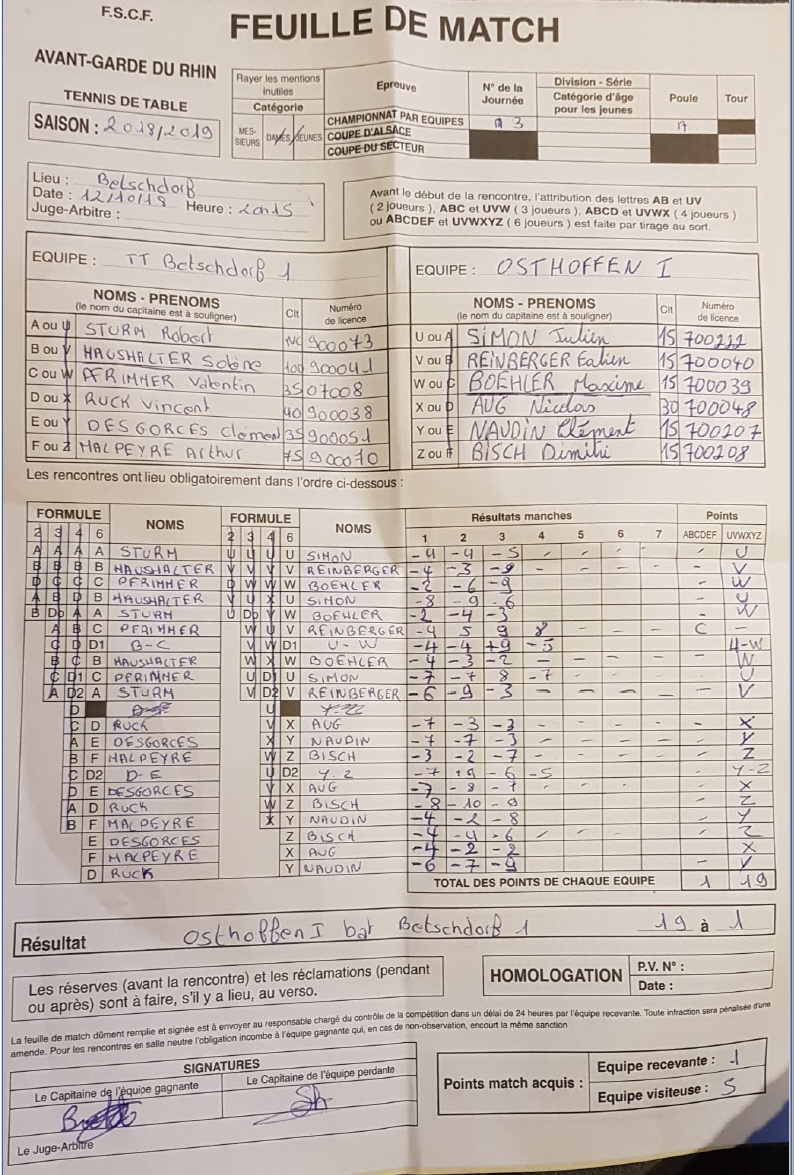 F.S.C.F.
FEUILLE DE MATCH
AVANT-GARDE DU RHIN
TENNIS DE TABLE
SAISON : 2018/2019
Rayer les mentions inutiles
Catégorie
MES-SIEURS DAMES JEUNES
Epreuve
CHAMPIONNAT PAR EQUIPES
COUPE D'ALSACE
COUPE DU SECTEUR
N° de la Journée
3
Division - Série
Catégorie d'âge pour les jeunes
Poule
A
Tour
Lieu : Betschdorf
Date : 12/10/18 Heure : 20h15
Juge-Arbitre :
Avant le début de la rencontre, l'attribution des lettres AB et UV
( 2 joueurs ), ABC et UVW ( 3 joueurs ), ABCD et UVWX ( 4 joueurs )
ou ABCDEF et UVWXYZ ( 6 joueurs ) est faite par tirage au sort.
EQUIPE : TT Betschdorf 1
NOMS - PRENOMS Clt Numéro
(le nom du capitaine est à souligner) de licence
A ou U STURM Robert NC 900073
B ou V HAUSHALTER Solène 100 900041
C ou W PFRIMMER Valentin 35 07008
D ou X RUCK Vincent 40 900038
E ou Y DESGORCES Clément 35 900051
F ou Z MALPEYRE Arthur 75 900070
EQUIPE : OSTHOFFEN I
NOMS - PRENOMS Clt Numéro
(le nom du capitaine est à souligner) de licence
U ou A SIMON Julien 15 700211
V ou B REINBERGER 15 700040
W ou C BOEHLER Maxime 15 700039
X ou D AUG Nicolas 30 700048
Y ou E NAUDIN Clément 15 700207
Z ou F BISCH Dimitri 15 700208
Les rencontres ont lieu obligatoirement dans l'ordre ci-dessous :
FORMULE NOMS FORMULE NOMS Résultats manches Points
2 3 4 6 2 3 4 6 1 2 3 4 5 6 7 ABCDEF UVWXYZ
A A A A STURM U U U U SIMON -4 -4 -5 - - - - - U
B B B B HAUSHALTER V V V V REINBERGER -4 -3 -9 - - - - - V
D C C C PFRIMMER D W W W BOEHLER -2 -6 -9 - W
A B D B HAUSHALTER V U X U SIMON -8 -9 -6 - U
B Db A A STURM U Db V W BOEHLER -2 -4 -3 - W
A B C PFRIMMER W U V REINBERGER -4 5 9 8 - - - C -
C D D1 B-C V W D1 U-W -4 -4 +9 -5 U-W
B C B HAUSHALTER W X W BOEHLER -4 -3 -2 - - - - - W
C D1 C PFRIMMER U D1 U SIMON -7 -7 8 -7 - - - - U
A D2 A STURM V D2 V REINBERGER -6 -9 -3 - - - - - V
D U
C D RUCK V X AUG -7 -3 -3 - - - - - X
A E DESGORCES X Y NAUDIN -7 -7 -3 - - - - - Y
B F MALPEYRE W Z BISCH -3 -2 -7 - - - - - Z
C D2 D-E U D2 Y-Z -7 +9 -6 -5 Y-Z
D E DESGORCES V X AUG -7 -8 -7 - - - - - X
A D RUCK W Z BISCH -8 -10 -9 - Z
B F MALPEYRE X Y NAUDIN -4 -2 -8 - Y
E DESGORCES Z BISCH -4 -4 -6 - - - - - Z
F MALPEYRE X AUG -4 -2 -2 X
D RUCK Y NAUDIN -6 -7 -9 - Y
TOTAL DES POINTS DE CHAQUE EQUIPE 1 19
Résultat Osthoffen I bat Betschdorf 1 19 à 1
Les réserves (avant la rencontre) et les réclamations (pendant
ou après) sont à faire, s'il y a lieu, au verso.
HOMOLOGATION
P.V. N° :
Date :
La feuille de match dûment remplie et signée est à envoyer au responsable chargé du contrôle de la compétition dans un délai de 24 heures par l'équipe recevante. Toute infraction sera pénalisée d'une
amende. Pour les rencontres en salle neutre l'obligation incombe à l'équipe gagnante qui, en cas de non-observation, encourt la même sanction
SIGNATURES
Le Capitaine de l'équipe gagnante
Le Capitaine de l'équipe perdante
Le Juge-Arbitre
Points match acquis :
Equipe recevante : 1
Equipe visiteuse : 5